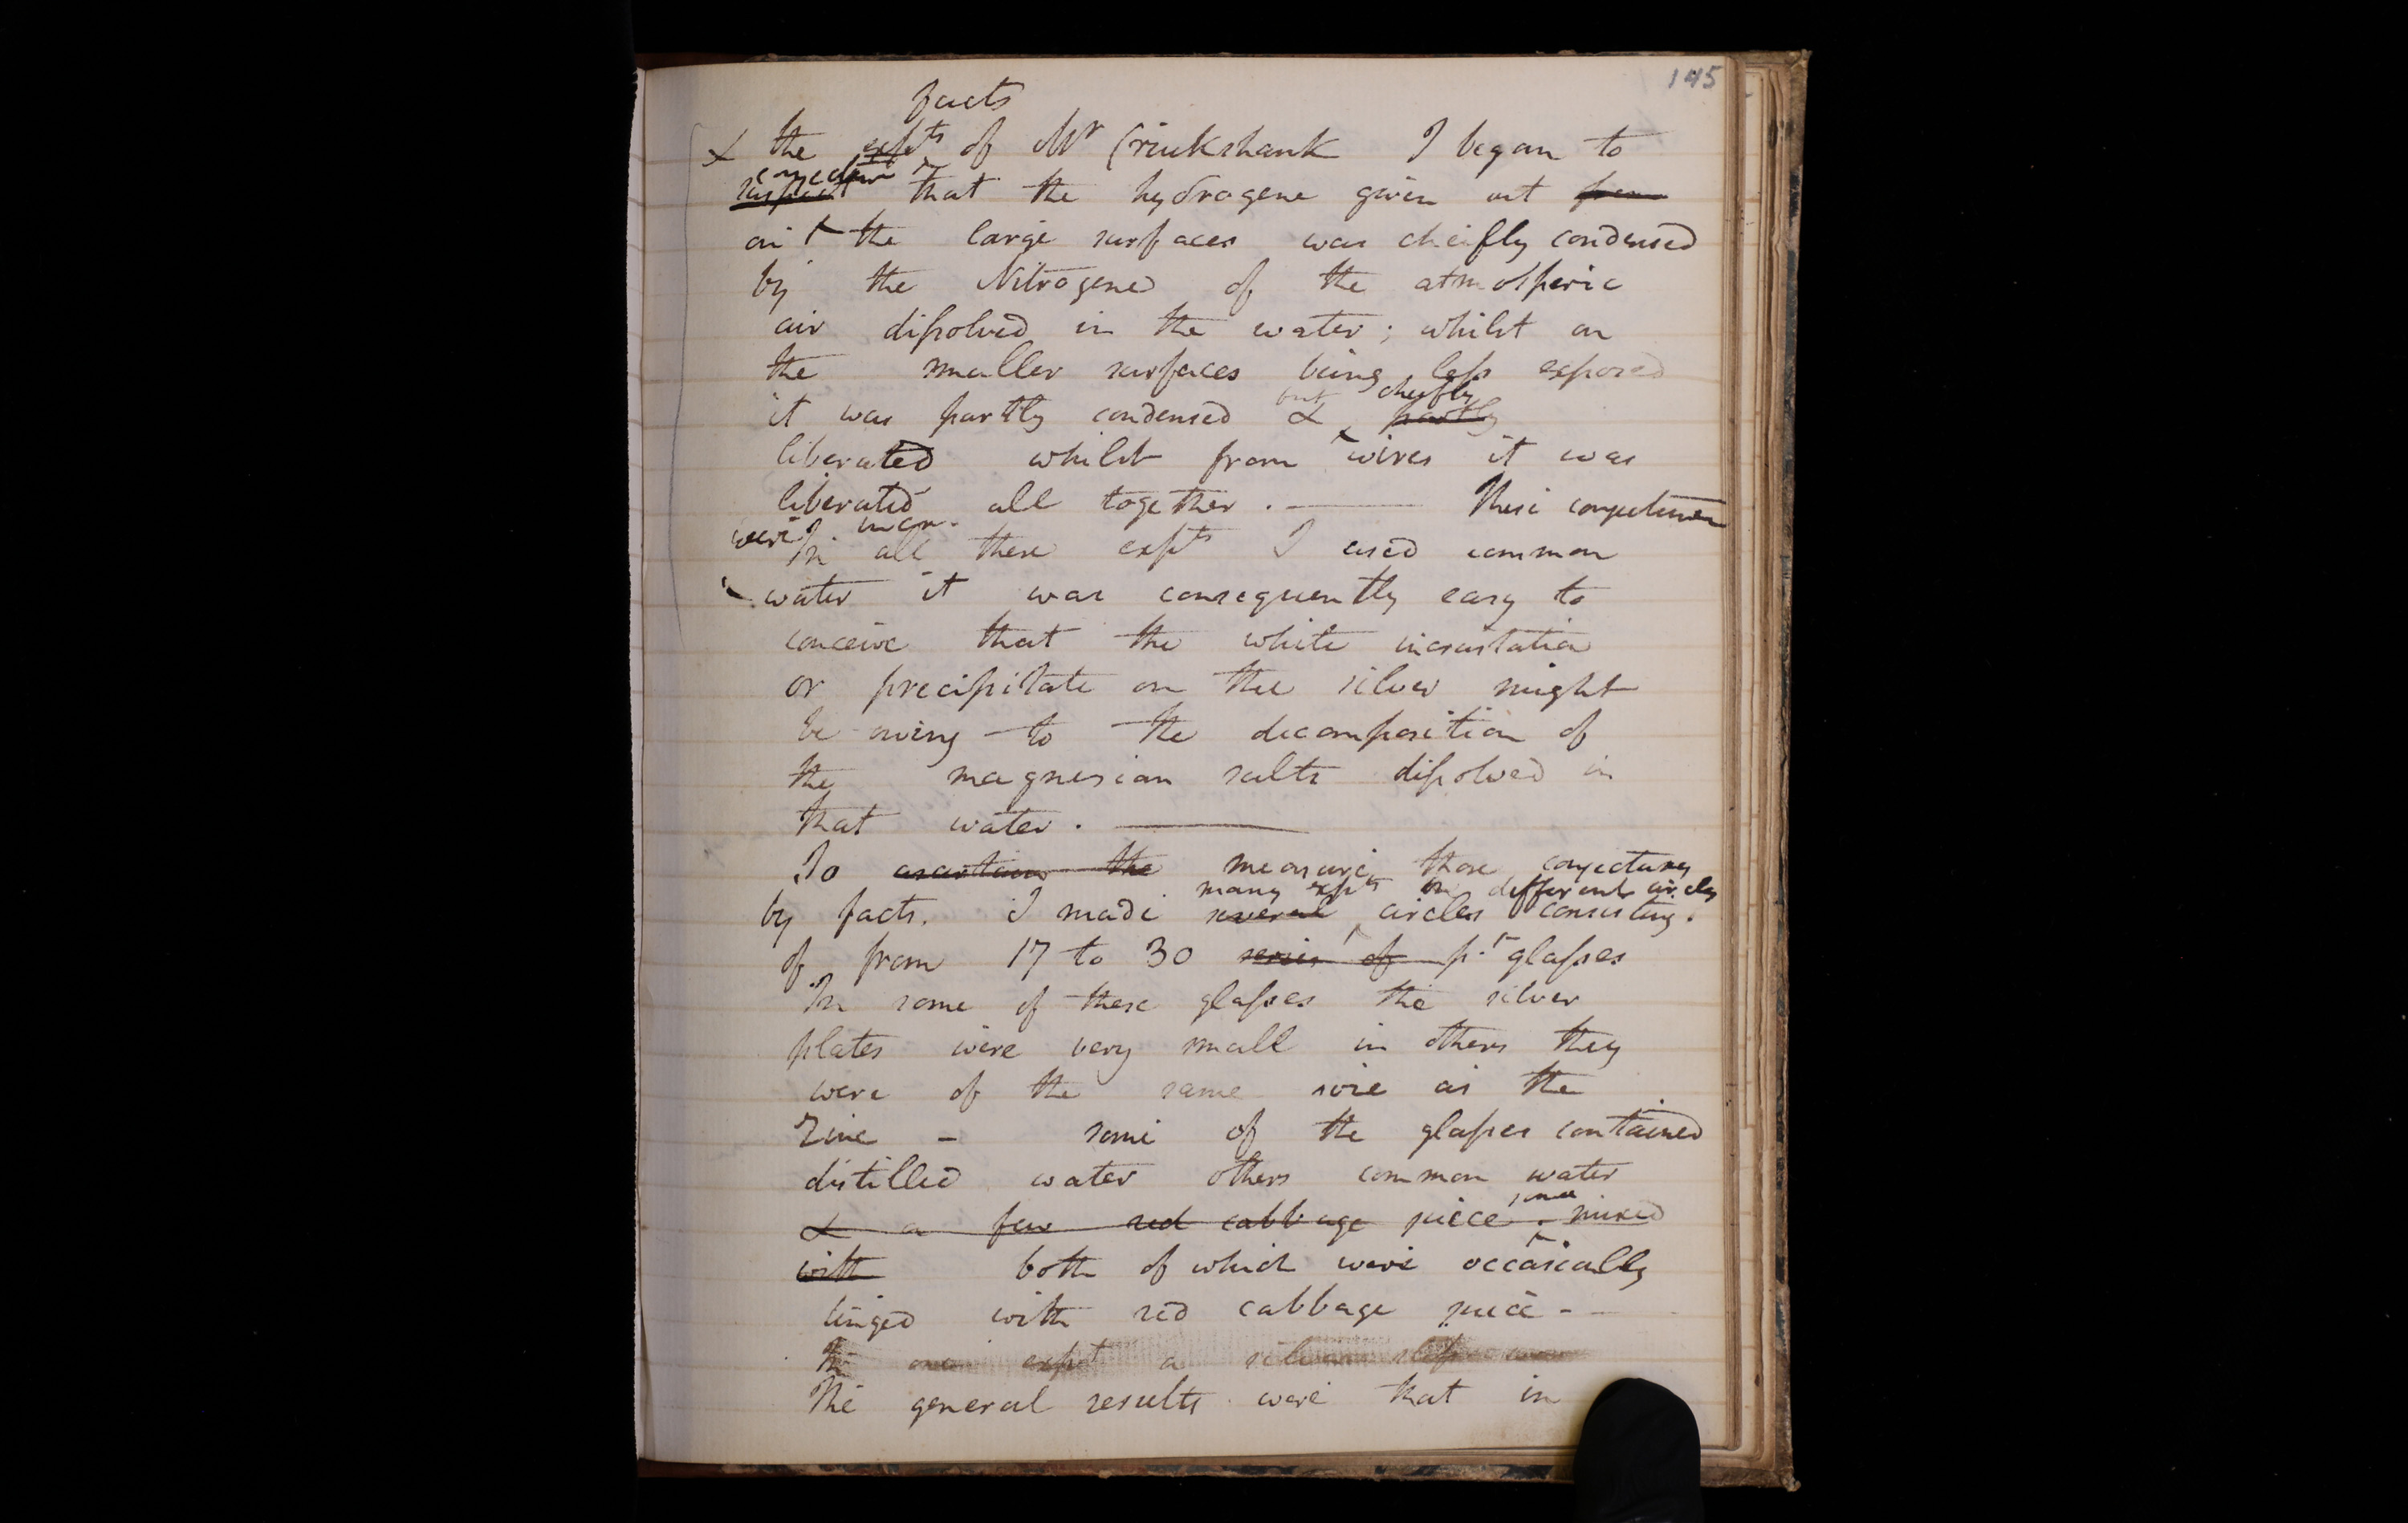 145
facts
& the expts of Mr Cruickshank I began to
conjecture
suspect that the hydrogene given out from
on the large surfaces was cheifly condensed
by the Nitrogene of the atmosperic
air dissolved in the water; whilst on
the smaller surfaces being less exposed
but cheifly
it was partly condensed & partly
liberated whilst from wires it was
liberated all together. — These conjectures
were
In all these expts I used common
water it was consequently easy to
conceive that the white incrustation
or precipitate on the silver might
be owing to the decomposition of
the magnesian salts dissolved in
that water. —
To ascertain the measure those conjectures
many expts on different circles
by facts. I made several circles consisting.
of from 17 to 30 series of pr glasses
In some of these glasses the silver
plates were very small in others they
were of the same size as the
Zinc - some of the glasses contained
distilled water others common water
& a few red cabbage juice mixed
with both of which were occasically
tinged with red cabbage juice -
In one expt a silver
The general results were that in